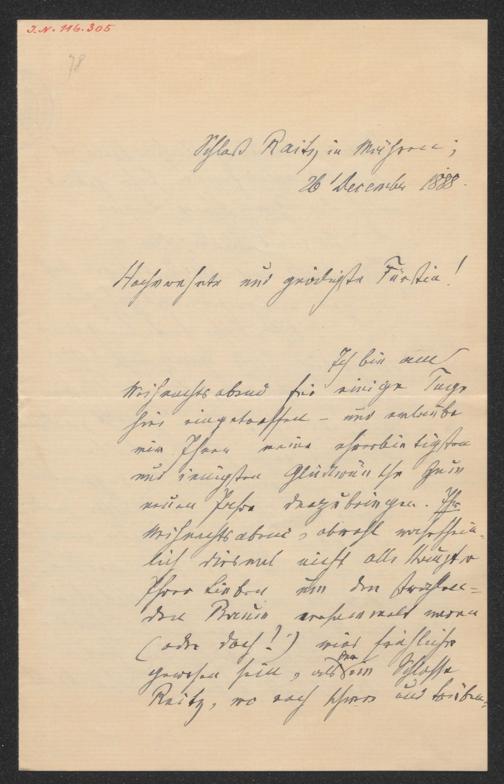 J.N. 116.305
78
Schloß Raitz in Mähren;
26 December 1888.
Hochverehrte und gnädigste Fürstin!
Ich bin am
Weihnachtsabend für einige Tage
hier eingetroffen – und erlaube
mir Ihnen meine ehrerbietigsten
und innigsten Glückwünsche zum
neuen Jahre darzubringen. Ihr
Weihnachtsabend, obwohl wahrschein-
lich diesmal nicht alle Häupter
Ihrer Lieben um den strahlen-
den Baum versammelt waren
(oder doch!?) wird fröhlicher
gewesen sein, als der im Schlosse
Raitz, wo nach schwer und trüben,